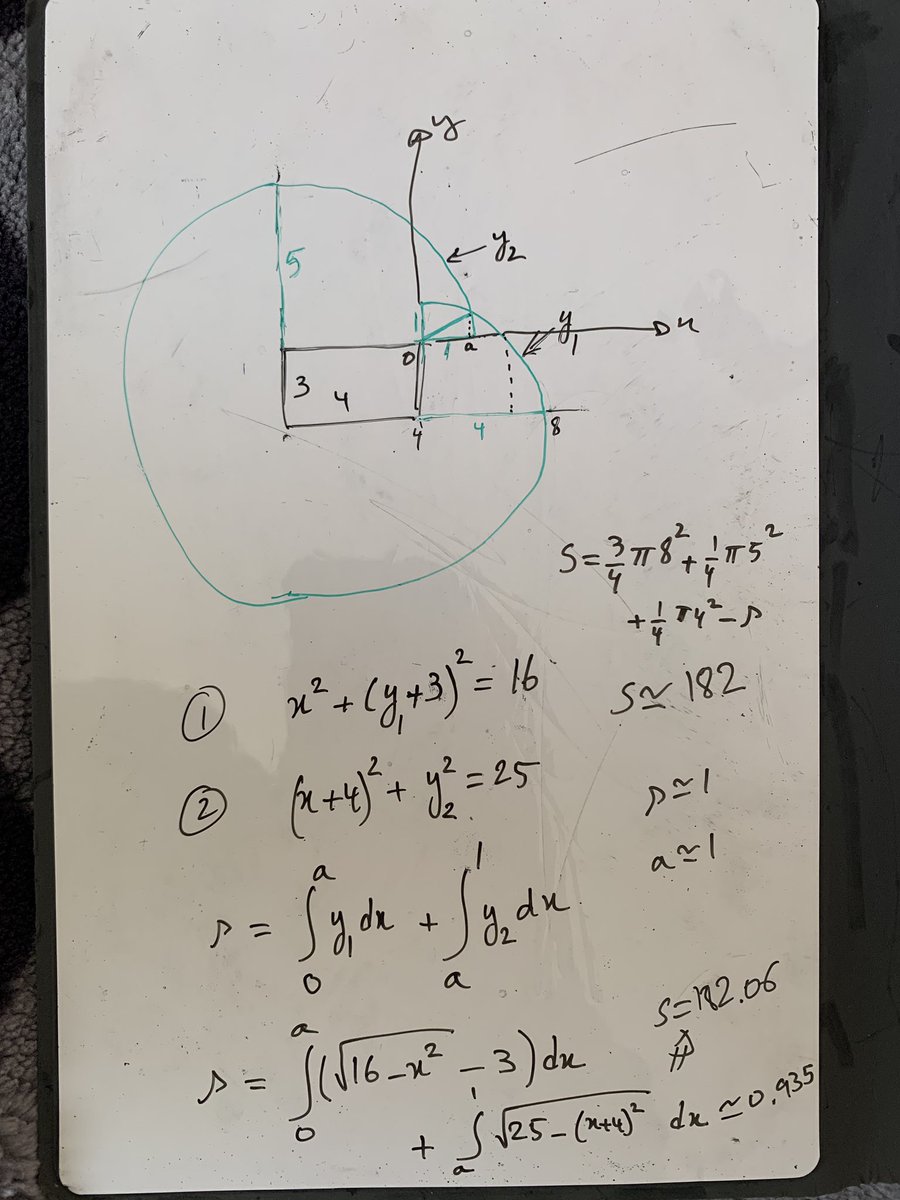 y
y₂
5
1
y₁
x
0
1
a
3
4
4
4
8
S = 3/4 π 8² + 1/4 π 5²
+ 1/4 π 4² - s
① x² + (y₁+3)² = 16
S ≃ 182
② (x+4)² + y₂² = 25
s ≃ 1
a ≃ 1
s = ∫₀ᵃ y₁ dx + ∫ₐ¹ y₂ dx
S = 182.06
s = ∫₀ᵃ (√(16 - x²) - 3) dx
+ ∫ₐ¹ √(25 - (x+4)²) dx ≃ 0.935